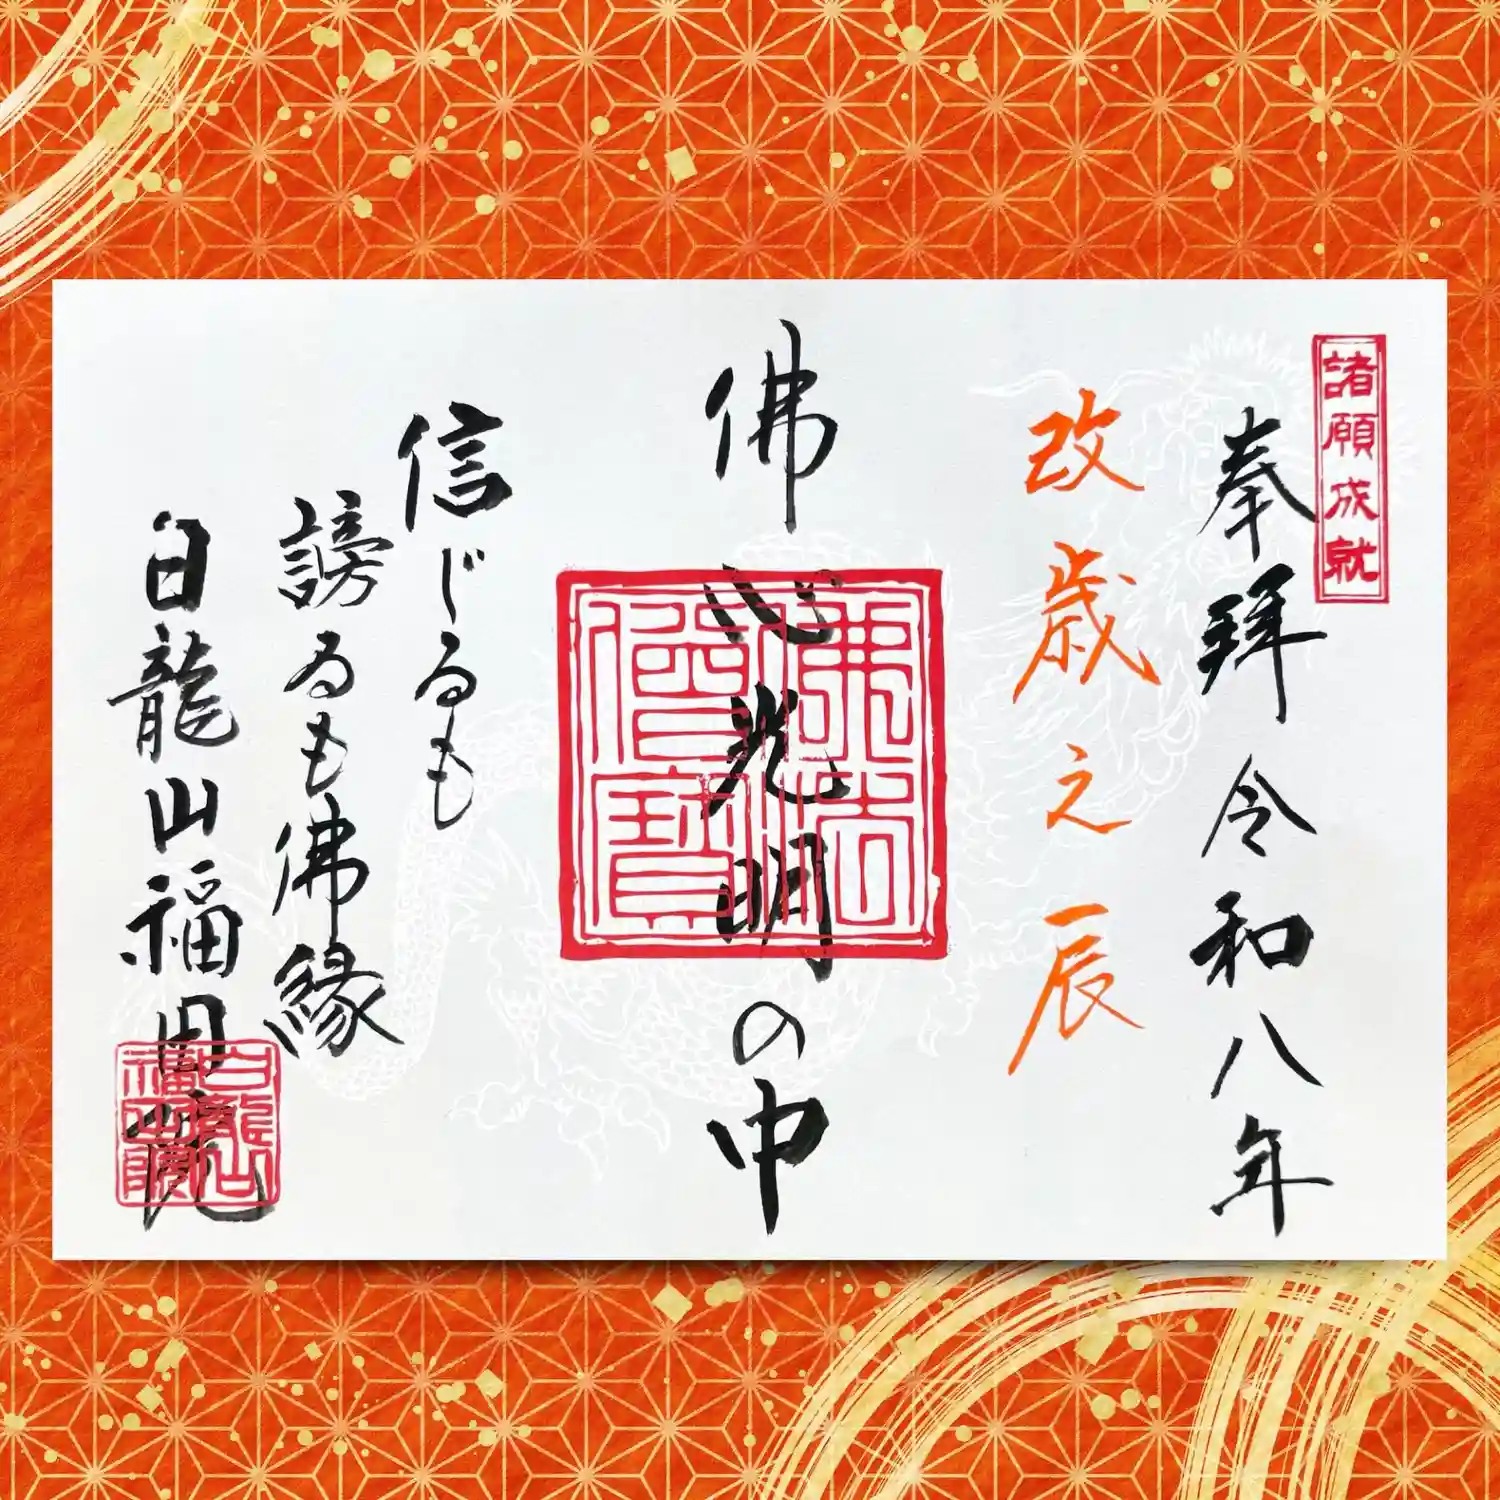 諸願成就
奉拜 令和八年
改歳之辰
佛心光明の中
佛法僧寶
信じるも
謗るも佛縁
白龍山福田院